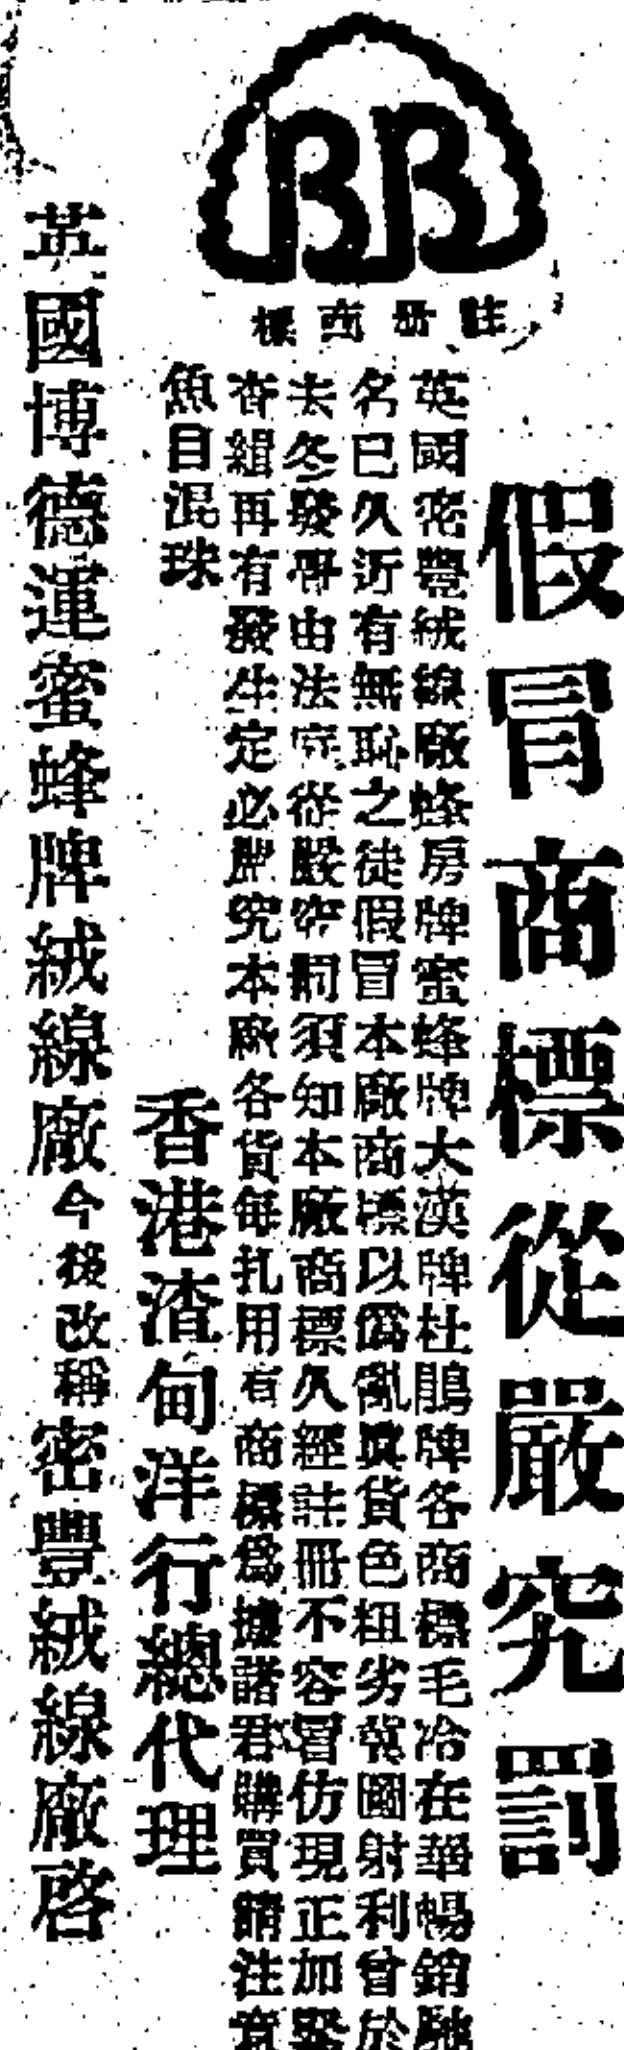 BB
註冊商標
假冒商標從嚴究罰
英國密豐絨線廠蜂房牌蜜蜂牌大漢牌杜鵑牌各商標毛冷在華暢銷馳
名已久近有無恥之徒假冒本廠商標以僞亂真貨色粗劣冀圖射利曾於
去冬發覺由法庭從嚴究罰須知本廠商標久經註冊不容冒仿現正加緊
查緝再有發生定必嚴究本廠各貨每扎用有商標爲據諸君購買請注意
魚目混珠
香港渣甸洋行總代理
英國博德運蜜蜂牌絨線廠今後改稱密豐絨線廠啓